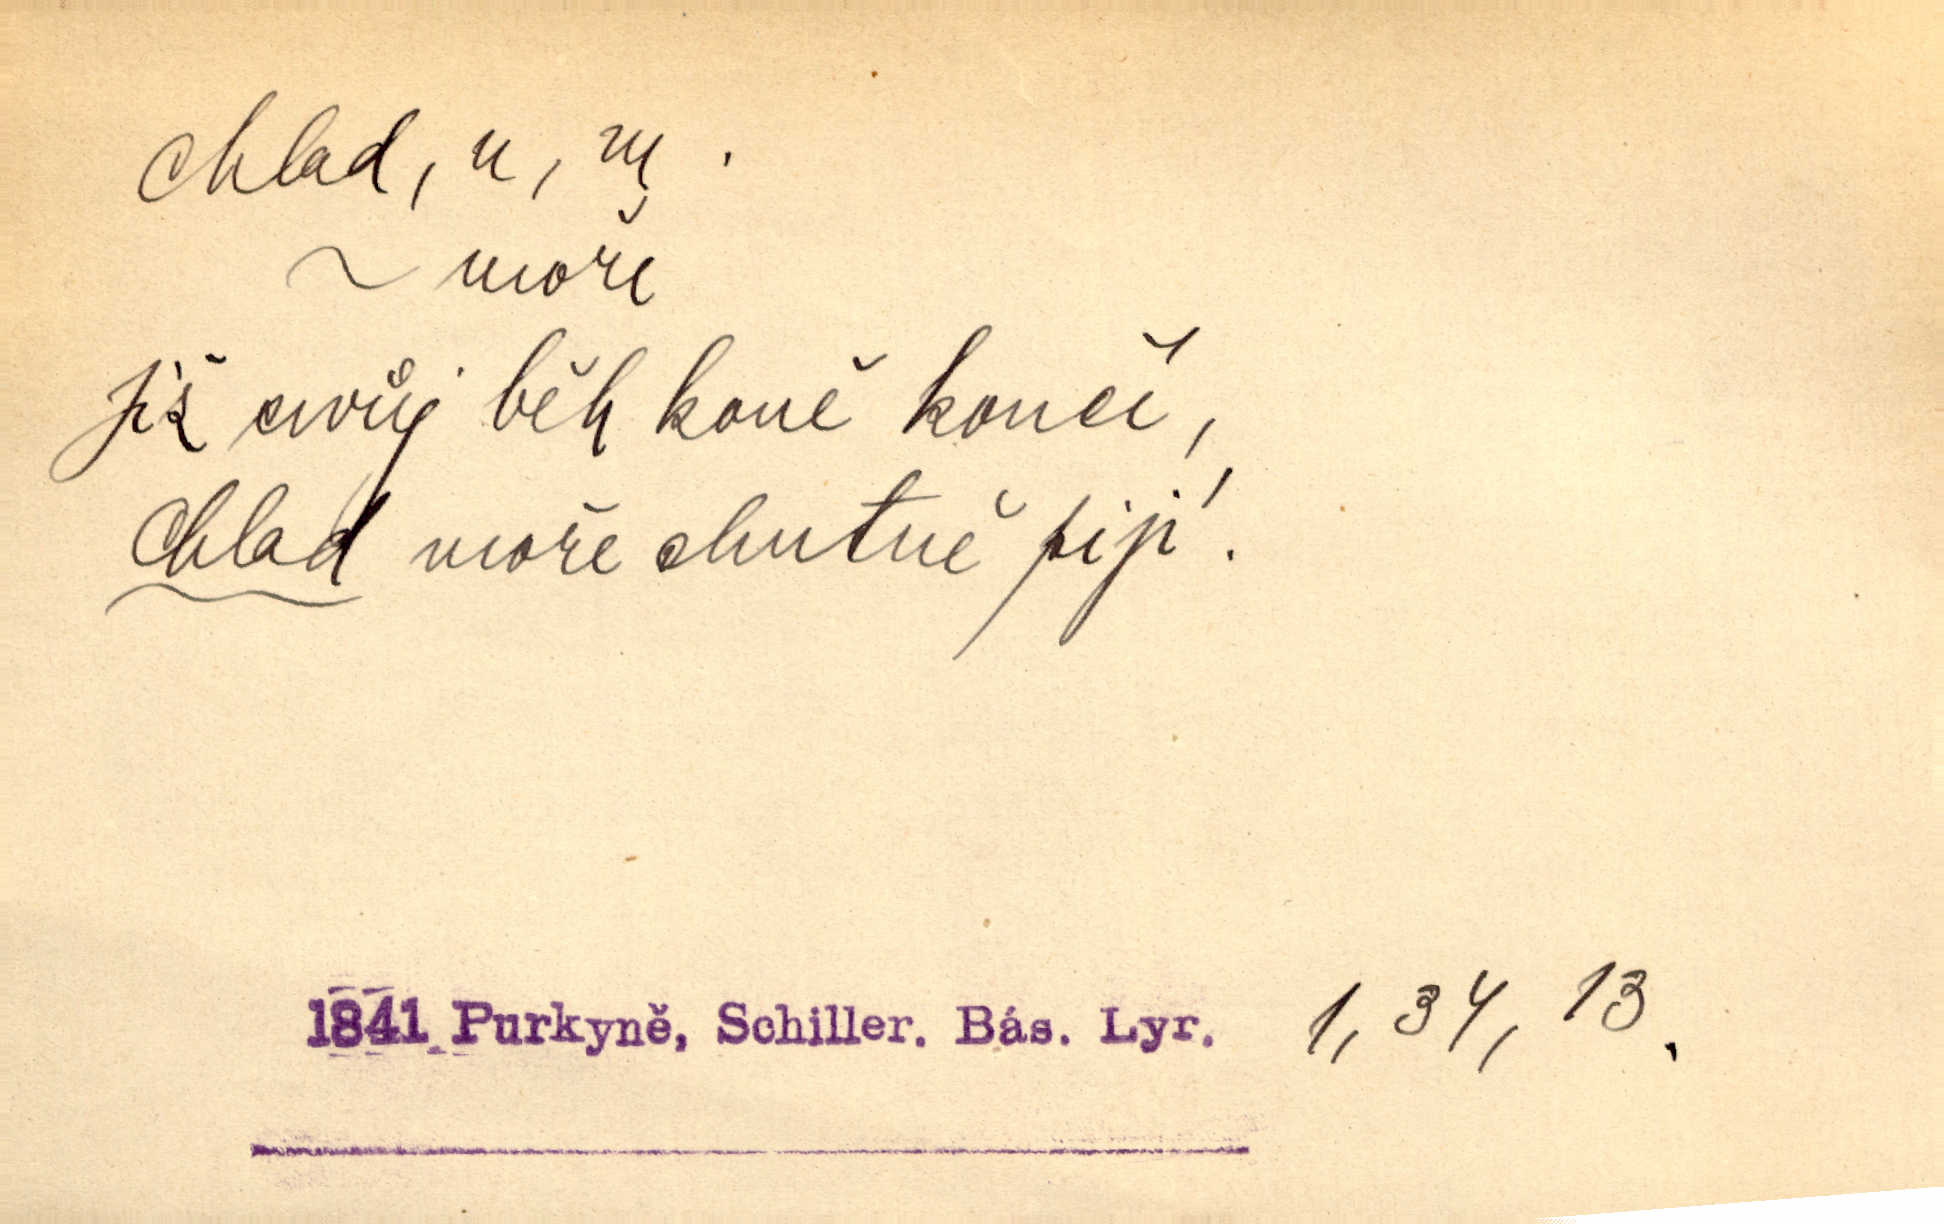 chlad, u, m.
~ moře
Již svůj běh koně končí,
Chlad moře chutně pijí.
1841 Purkyně, Schiller. Bás. Lyr. 1, 34, 13.